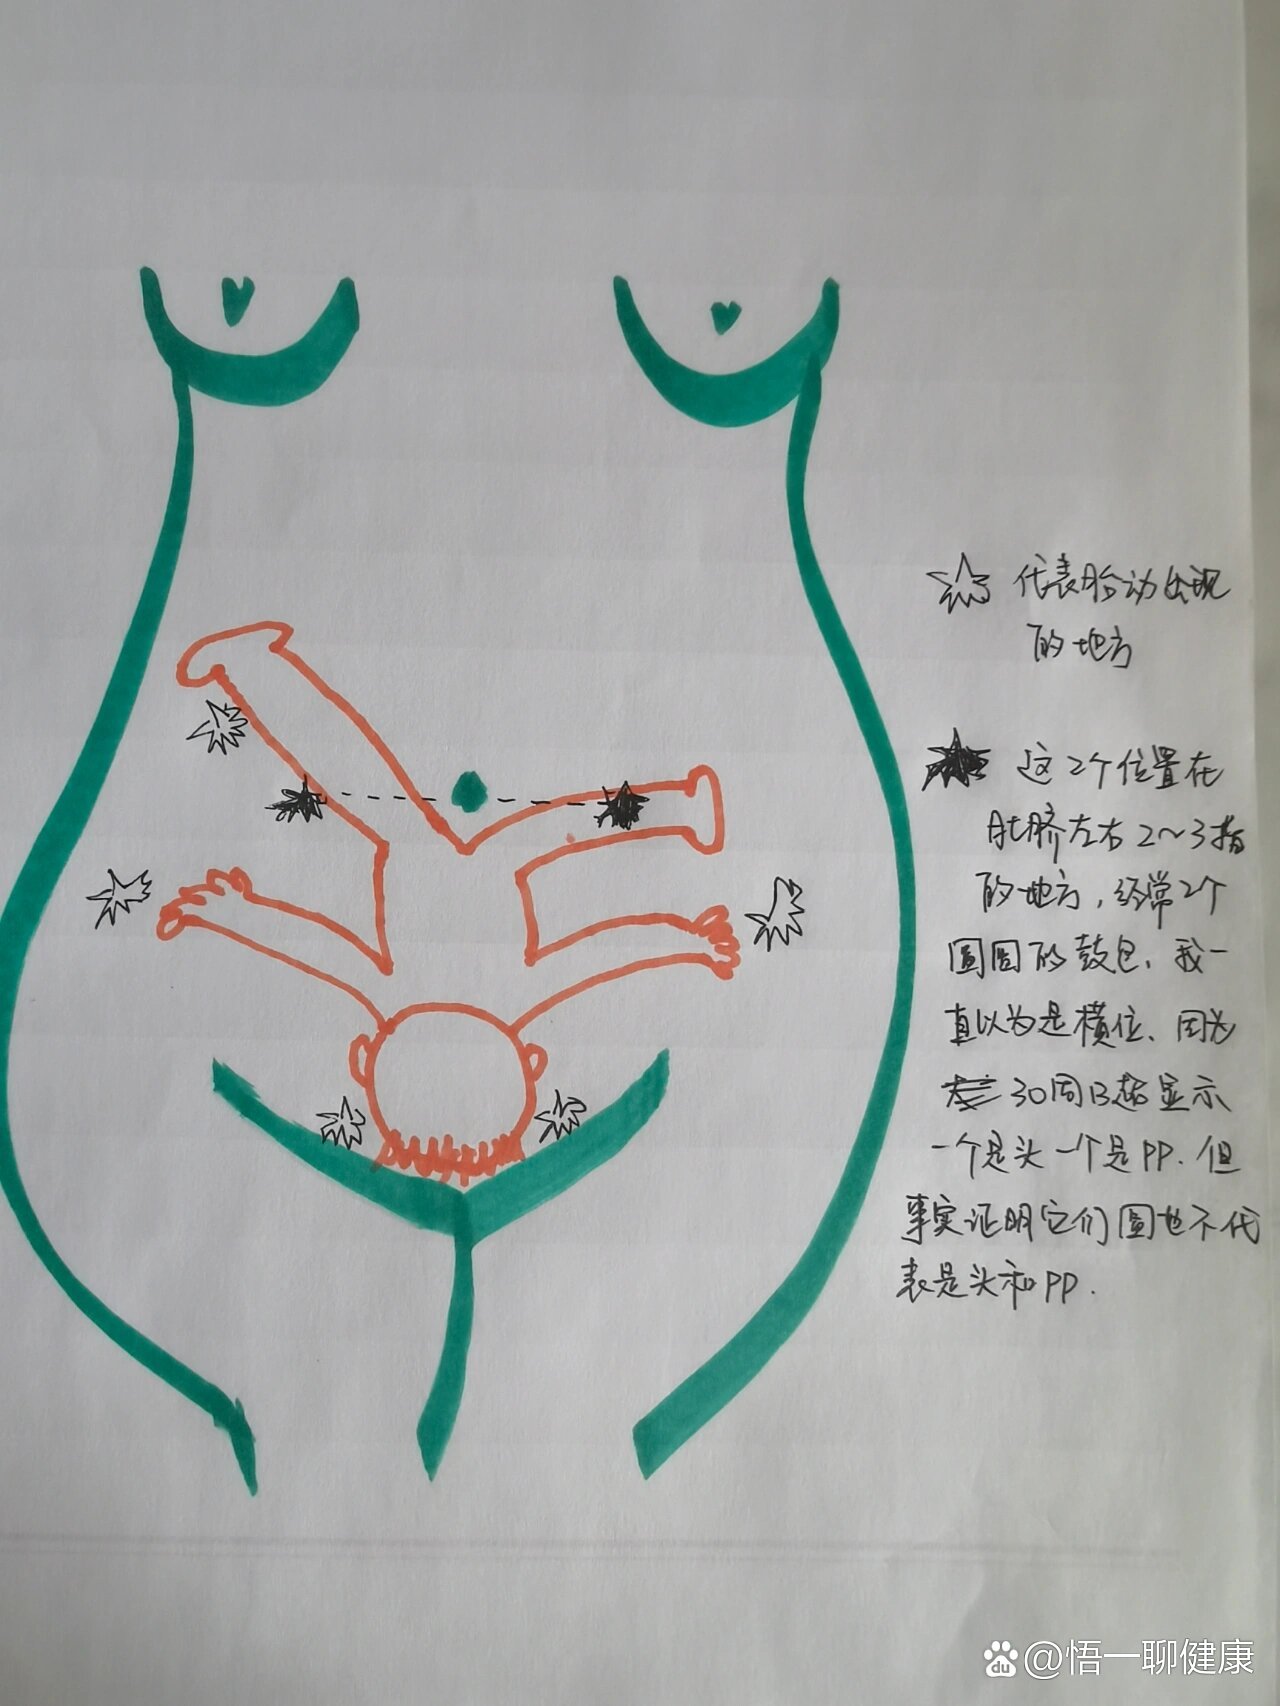 代表胎动出现
的地方
这2个位置在
肚脐左右2～3指
的地方，经常2个
圆圆的鼓包、我一
直以为是横位、因为
30周B超显示
一个是头一个是PP.但
事实证明它们圆也不代
表是头和PP.
du @悟一聊健康